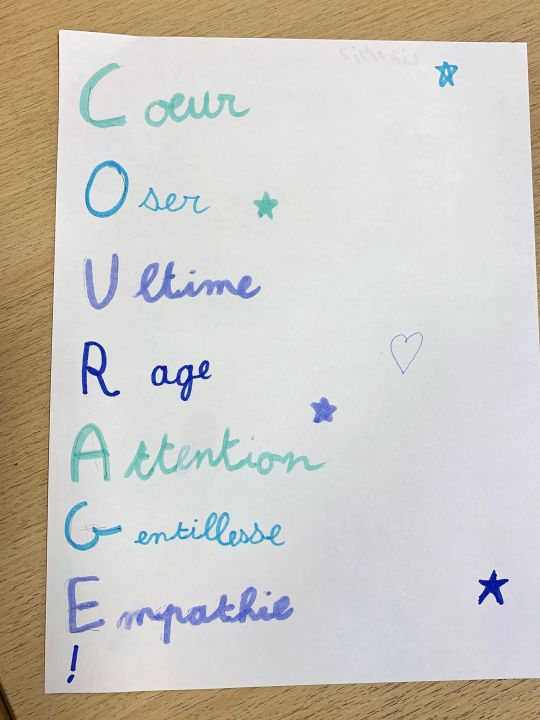 Coeur
Oser
Ultime
Rage
Attention
Gentillesse
Empathie
!